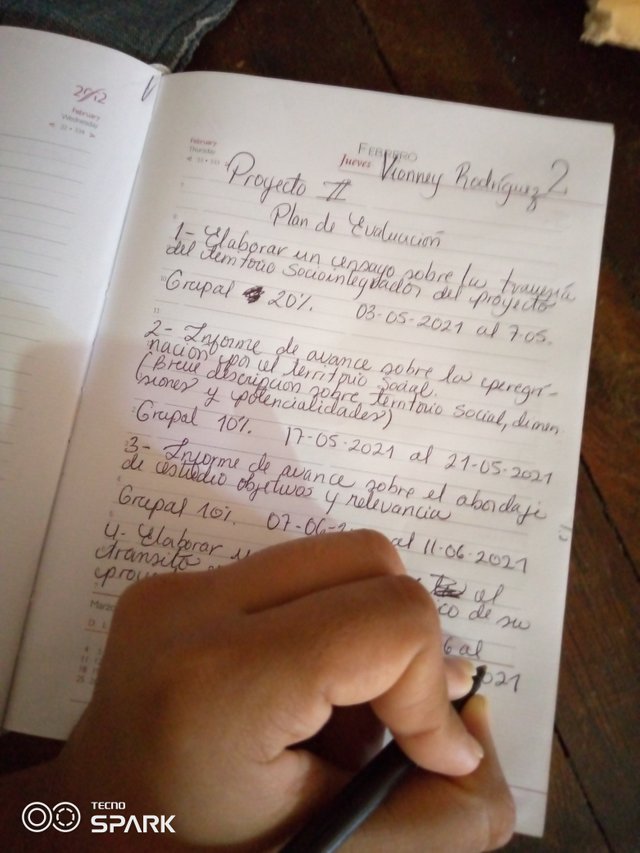 29/2
February
Wednesday
February
Thursday
FEBRERO
Jueves Vionney Rodríguez 2
Proyecto II
Plan de Evaluación
1- Elaborar un ensayo sobre la travesía
del territorio sociointegrador del proyecto
Grupal 20%. 03-05-2021 al 7-05.
2- Informe de avance sobre la peregri-
nación por el territorio social.
(Breve descripción sobre territorio social, dimen
siones y potencialidades)
Grupal 10%. 17-05-2021 al 21-05-2021
3- Informe de avance sobre el abordaje
de estudio objetivos y relevancia
Grupal 10%. 07-06- al 11-06-2021
4- Elaborar
tránsito al
ico de su
6 al
2021
TECNO
SPARK